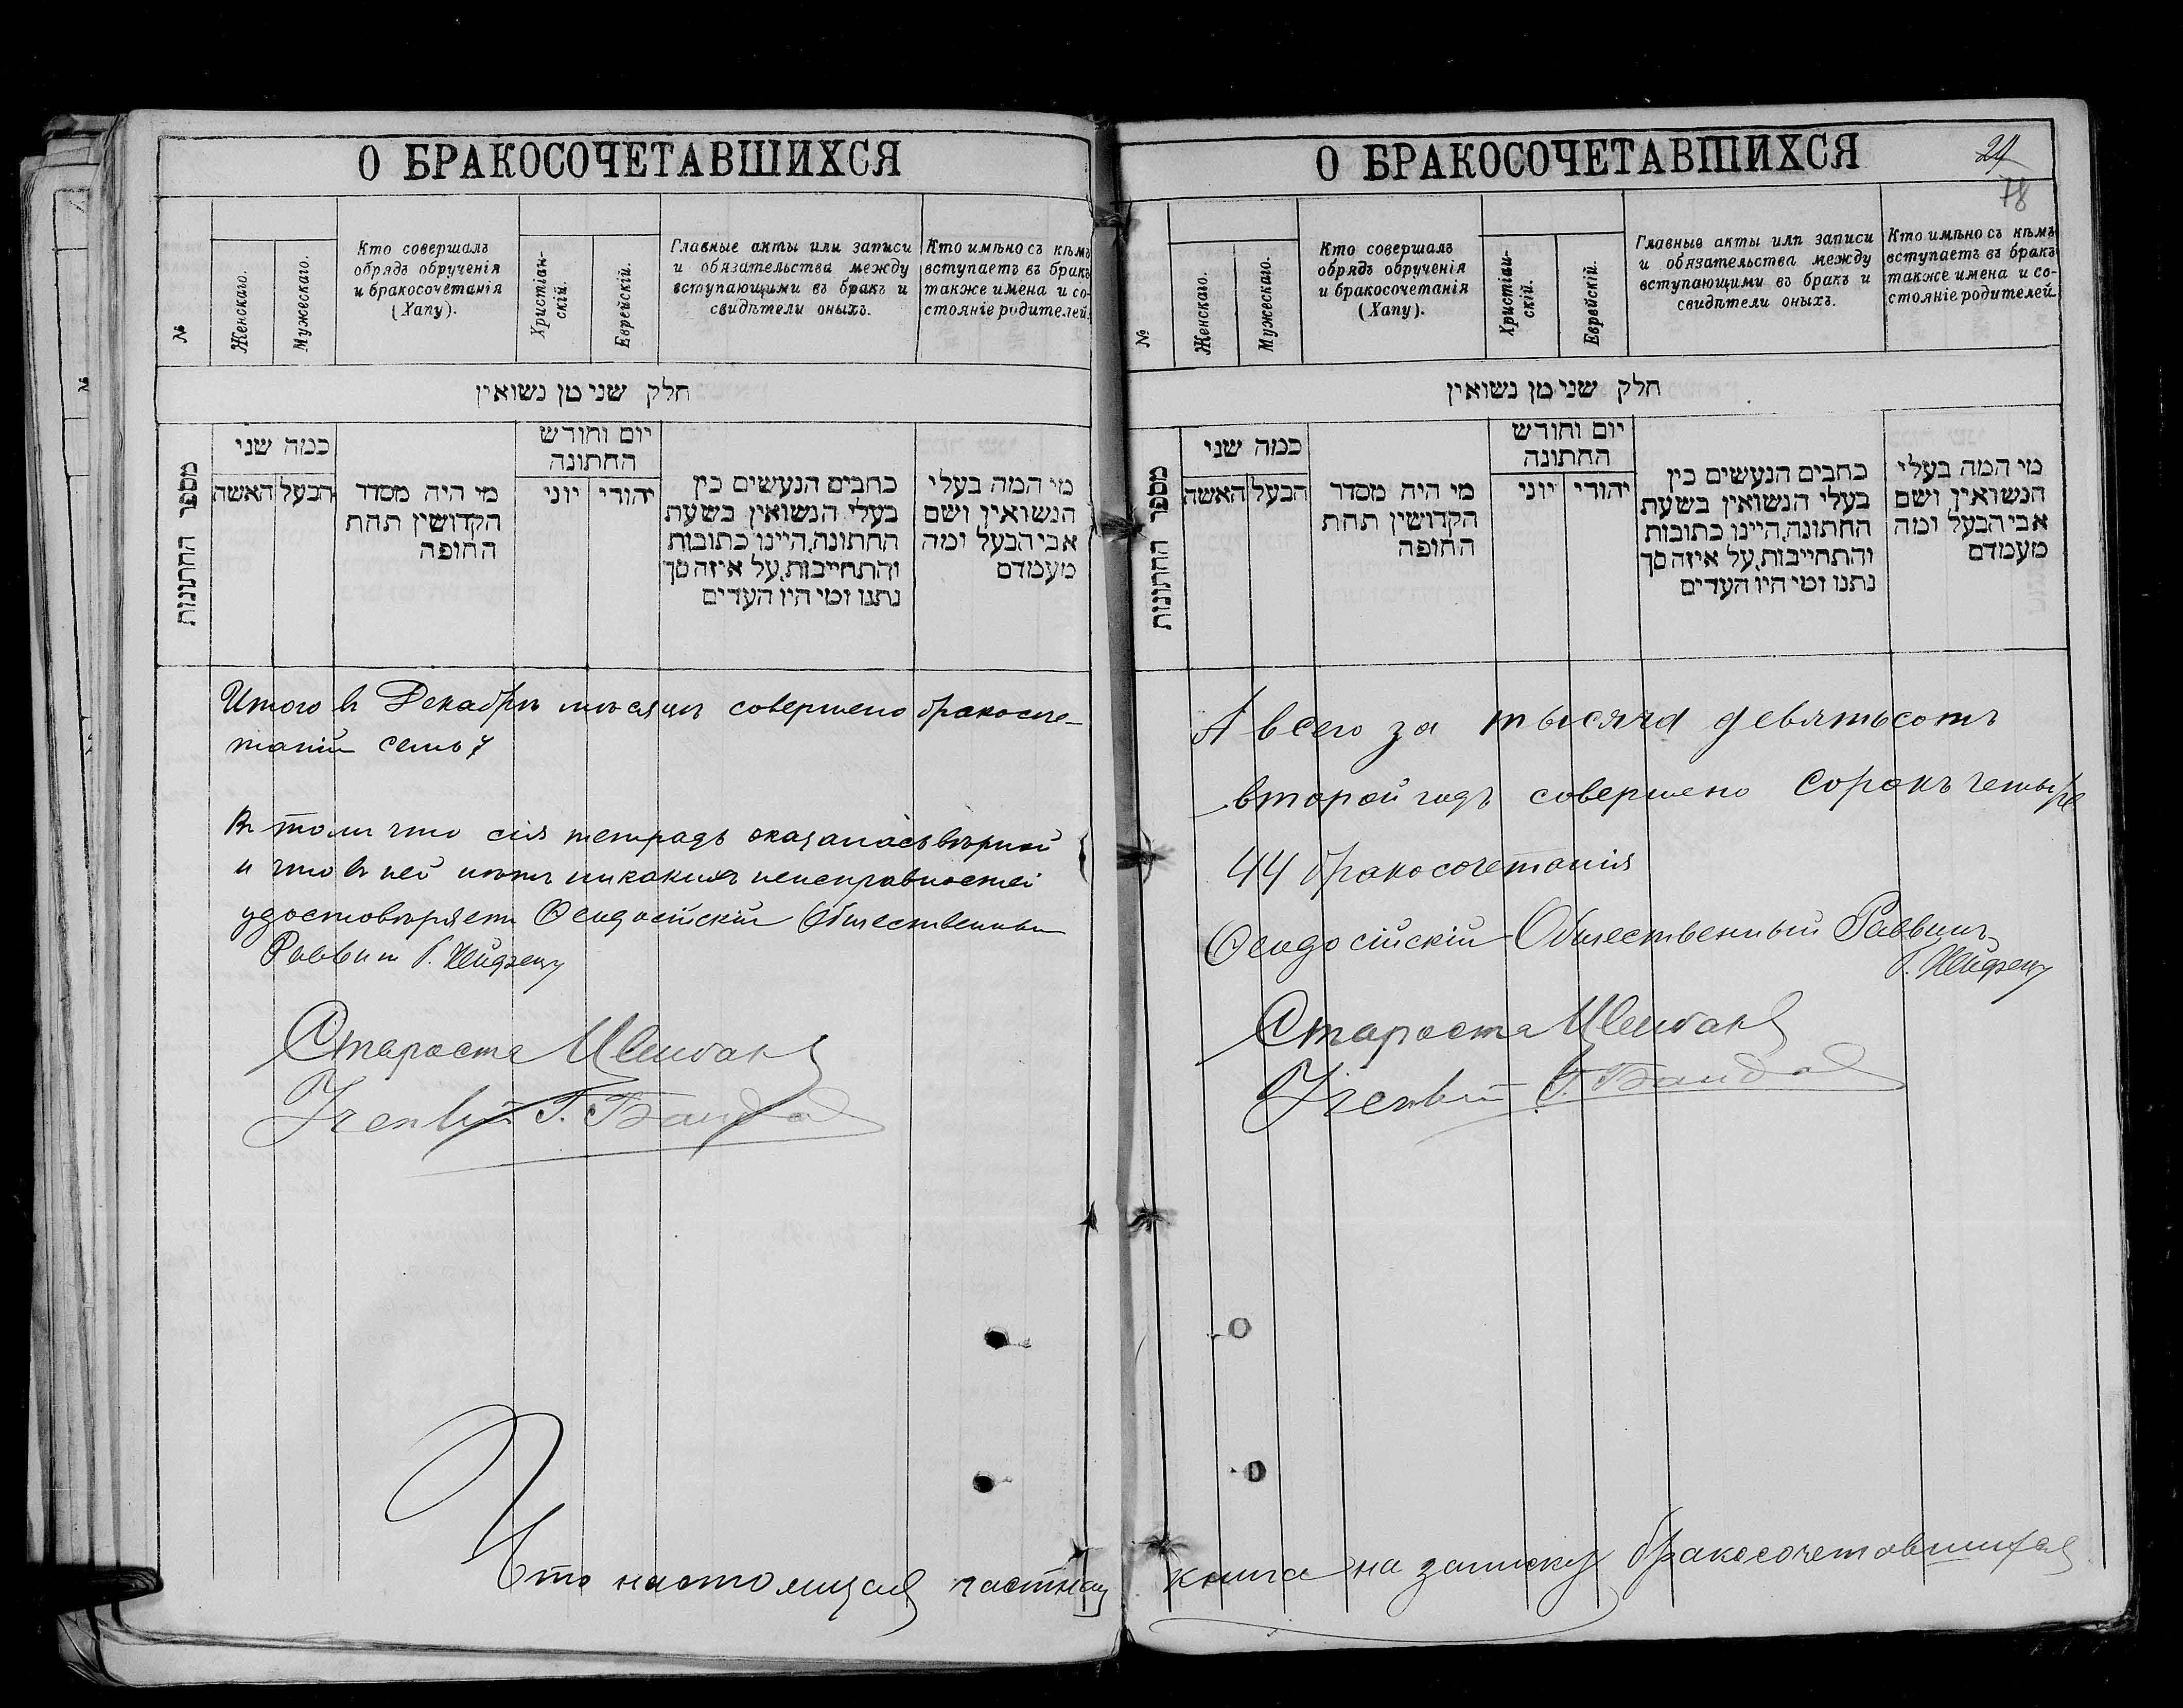 О БРАКОСОЧЕТАВШИХСЯ
№
Женскаго.
Мужескаго.
Кто совершалъ
обрядъ обрученія
и бракосочетанія
(Хапу).
Христіан-
скій.
Еврейскій.
Главные акты или записи
и обязательства между
вступающими въ бракъ и
свидѣтели оныхъ.
Кто имѣно съ кѣмъ
вступаетъ въ бракъ
также имена и со-
стояніе родителей.
חלק שני מן נשואין
מספר החתונות
כמה שני
האשה
הבעל
מי היה מסדר
הקדושין תחת
החופה
יום וחודש
החתונה
יוני
יהודי
כתבים הנעשים בין
בעלי הנשואין בשעת
החתונה, היינו כתובות
והתחייבות, על איזה סך
נתנו ומי היו העדים
מי המה בעלי
הנשואין ושם
אבי הבעל ומה
מעמדם
Итого въ Декабрѣ мѣсяцѣ совершено бракосоче-
таній семь 7
Въ томъ что сія тетрадь оказалась вѣрной
и что въ ней нѣтъ никакихъ неисправностей
удостовѣряетъ Ѳеодосійскій Общественный
Раввинъ
Староста
Ученый Г.
Что настоящая частная
О БРАКОСОЧЕТАВШИХСЯ
24
78
№
Женскаго.
Мужескаго.
Кто совершалъ
обрядъ обрученія
и бракосочетанія
(Хапу).
Христіан-
скій.
Еврейскій.
Главные акты или записи
и обязательства между
вступающими въ бракъ и
свидѣтели оныхъ.
Кто имѣно съ кѣмъ
вступаетъ въ бракъ
также имена и со-
стояніе родителей.
חלק שני מן נשואין
מספר החתונות
כמה שני
האשה
הבעל
מי היה מסדר
הקדושין תחת
החופה
יום וחודש
החתונה
יוני
יהודי
כתבים הנעשים בין
בעלי הנשואין בשעת
החתונה, היינו כתובות
והתחייבות, על איזה סך
נתנו ומי היו העדים
מי המה בעלי
הנשואין ושם
אבי הבעל ומה
מעמדם
А всего за тысяча девятьсотъ
второй годъ совершено сорокъ четыре
44 бракосочетанія
Ѳеодосійскій Общественный Раввинъ
Староста
Ученый Г.
книга на записку бракосочетавшихся